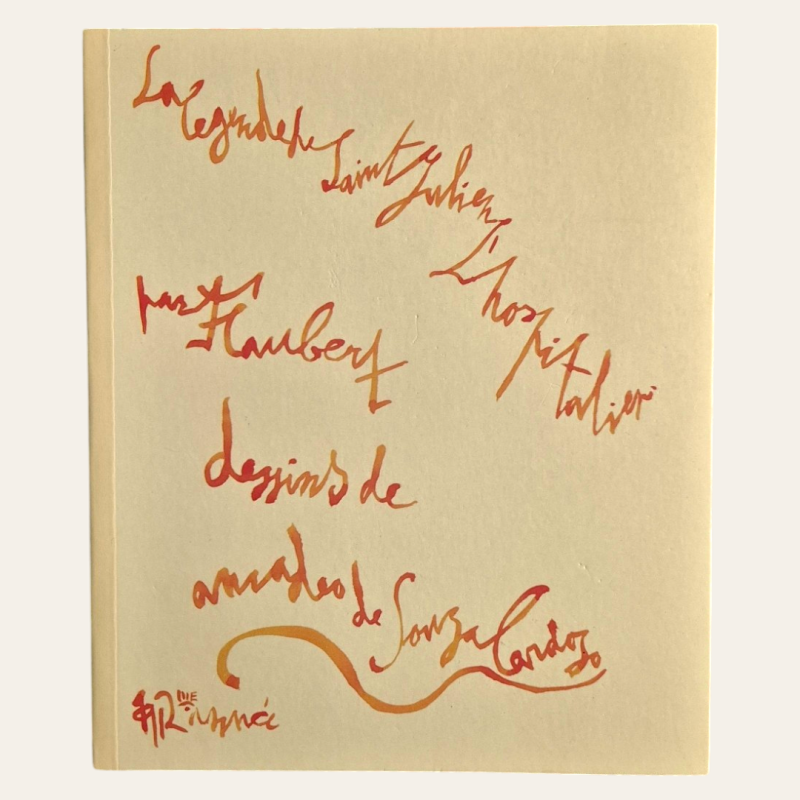 La legende de Saint Julien
L'hospitalier
par
Flaubert
dessins de
amadeo de Souza Cardozo